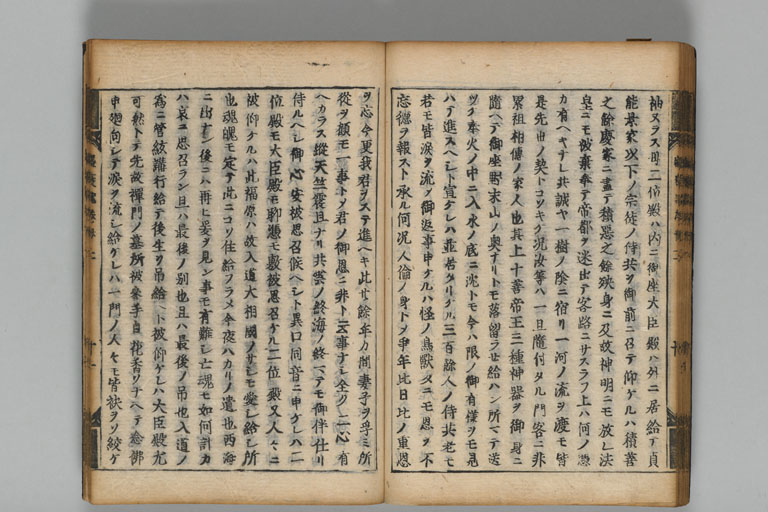 袖ヌラス母二位殿ハ内ニ御座大臣殿ハ外ニ居給テ貞
能景家以下ノ宗徒ノ侍共ヲ御前ニ召テ仰ケルハ積善
之餘慶家ニ盡テ積悪之餘殃身ニ及故神明ニモ放レ法
皇ニモ被棄奉テ帝都ヲ迷出テ客路ニサスラフ上ハ何ノ憑
カ有ヘキナレ共誠ヤ一樹ノ陰ニ宿リ一河ノ流ヲ慶モ皆
是先世ノ契トコソキケ況汝等ハ一旦隨付タル門客ニ非
累祖相傳ノ家人也其上十善帝王三種神器ヲ御身ニ
隨ヘテ御座野末山ノ奥ナリトモ落留ラセ給ハン所マテ送
ツケ奉火ノ中ニ入水ノ底ニ沈トモ今ハ限ノ御有様ヲモ見
ハテ進スヘシト宣ケレハ並居タリケル三百餘人ノ侍共老モ
若モ皆涙ヲ流ツ御返事申ケルハ怪ノ鳥獣タニモ恩ヲ不
忘徳ヲ報スト承ル何況人倫ノ身トヲ爭年比日比ノ重恩
ヲ忘今更我君ヲステ進ヘキ此廿餘年カ間妻子ヲ孚ミ所
從ヲ顧モ一事トメ君ノ御恩ニ非ト云事ナシ全ク二心有
ヘカラス縦天竺震旦ナリ共雲ノ終海ノ終マテモ御伴仕リ
侍ルヘシ御心安被思召候ヘシト異口同音ニ申ケレハ二
位殿モ大臣殿モ聊憑モ敷被思召ケル二位殿又人々ニ
被仰ケルハ此福原ハ故入道大相國ノサシモ愛シ給シ所
也魂魄モ定テ此ニコソ住給フラメ今夜ハカリノ遺也西海
ニ出ナン後ニハ再ヒ爰ヲ見ン事モ有難シ亡魂モ如何計カ
ハ哀ニ思召ラン且ハ最後ノ別也且ハ最後ノ弔也入道ノ
為ニ管絃講行給テ後生ヲ弔給ヘト被仰ケレハ大臣殿尤
可然トテ先故禪門ノ墓所被參手自花香ソナヘテ念佛
申墺向シテ涙ヲ流シ給ケレハ一門ノ人々モ皆袂ヲソ絞ケ